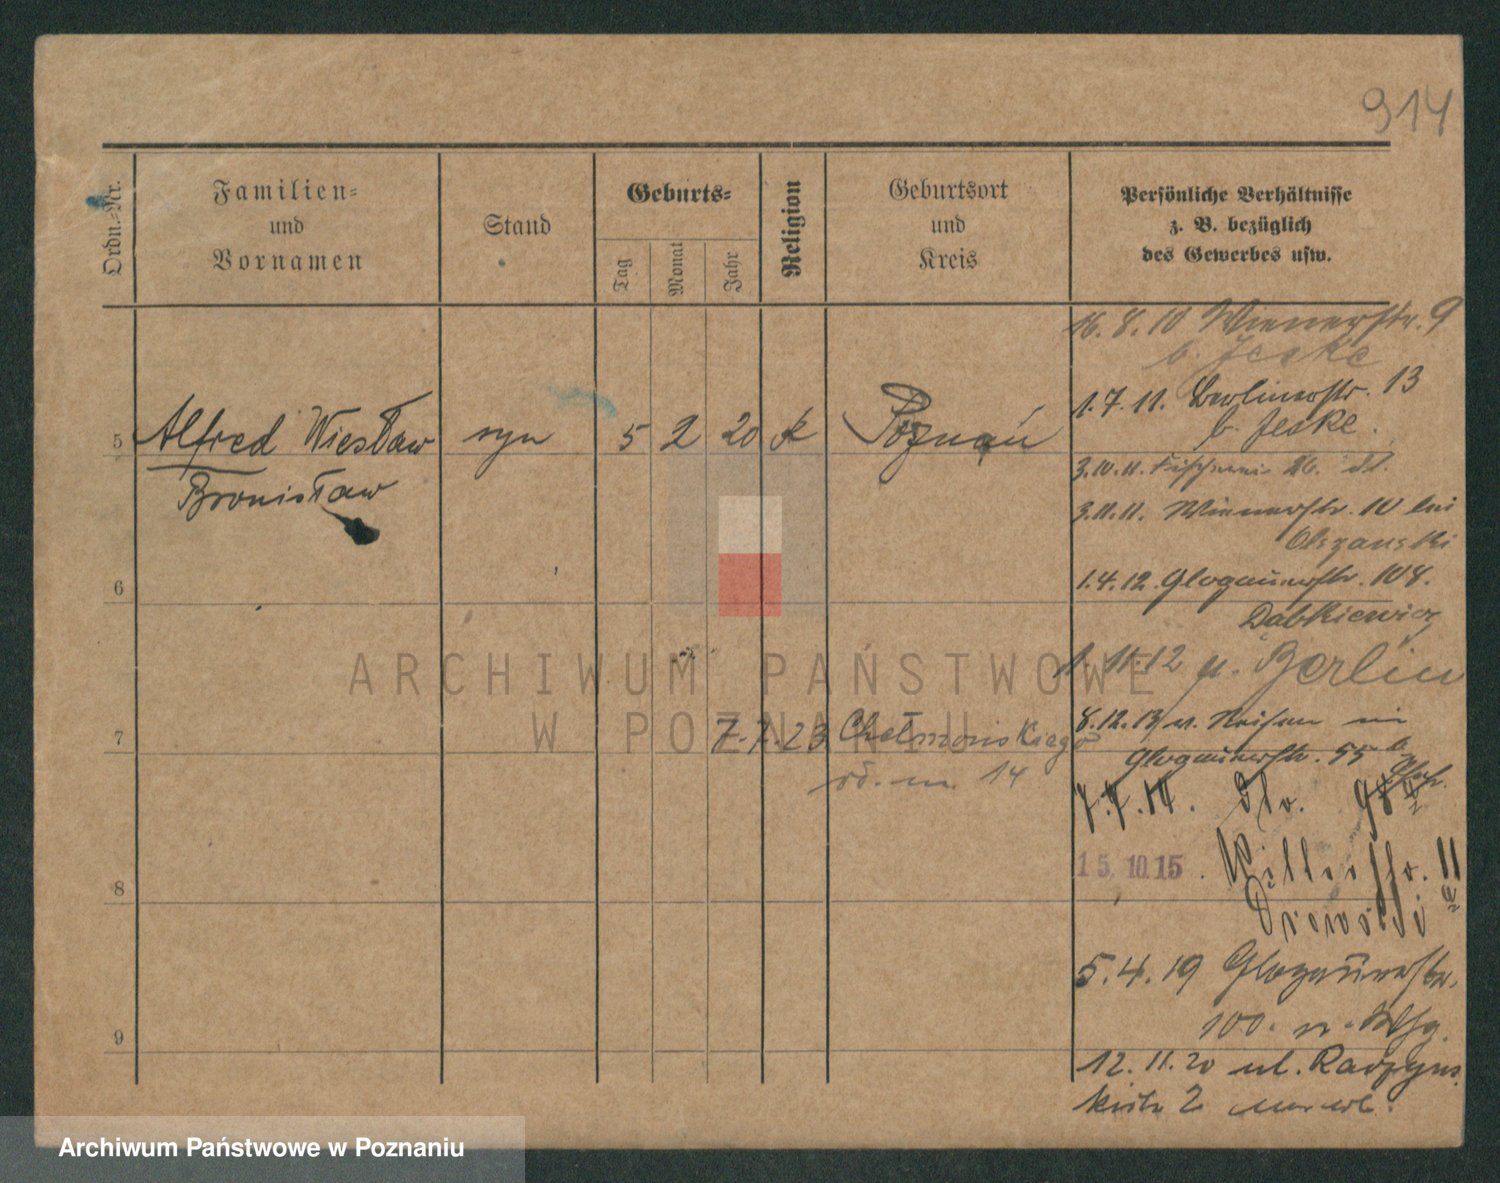 914
Ordn.-Nr.
Familien-
und
Vornamen
Stand
Geburts-
Tag
Monat
Jahr
Religion
Geburtsort
und
Kreis
Persönliche Verhältnisse
z. B. bezüglich
des Gewerbes usw.
16.8.10 Wienerstr. 9
b. Jeske
1.7.11. Berlinerstr. 13
b. Jeske.
5 Alfred Wiesław syn 5 2 20 k Poznań
Bronisław
3.10.11.
3.11.11. Wienerstr. 10 bei
Olszanski
6
1.4.12. Glogauerstr. 108.
Dabkiewicz
1.11.12 n. Berlin
ARCHIWUM PAŃSTWOWE
W POZNANIU
7
7.7.23 Chełmońskiego
14
8.12.13 v. Reisen
Glogauerstr. 55
7.7.14.
8
15.10.15.
11
5.4.19 Glogauerstr.
100.
9
12.11.20 ul. Radzyns
2
Archiwum Państwowe w Poznaniu